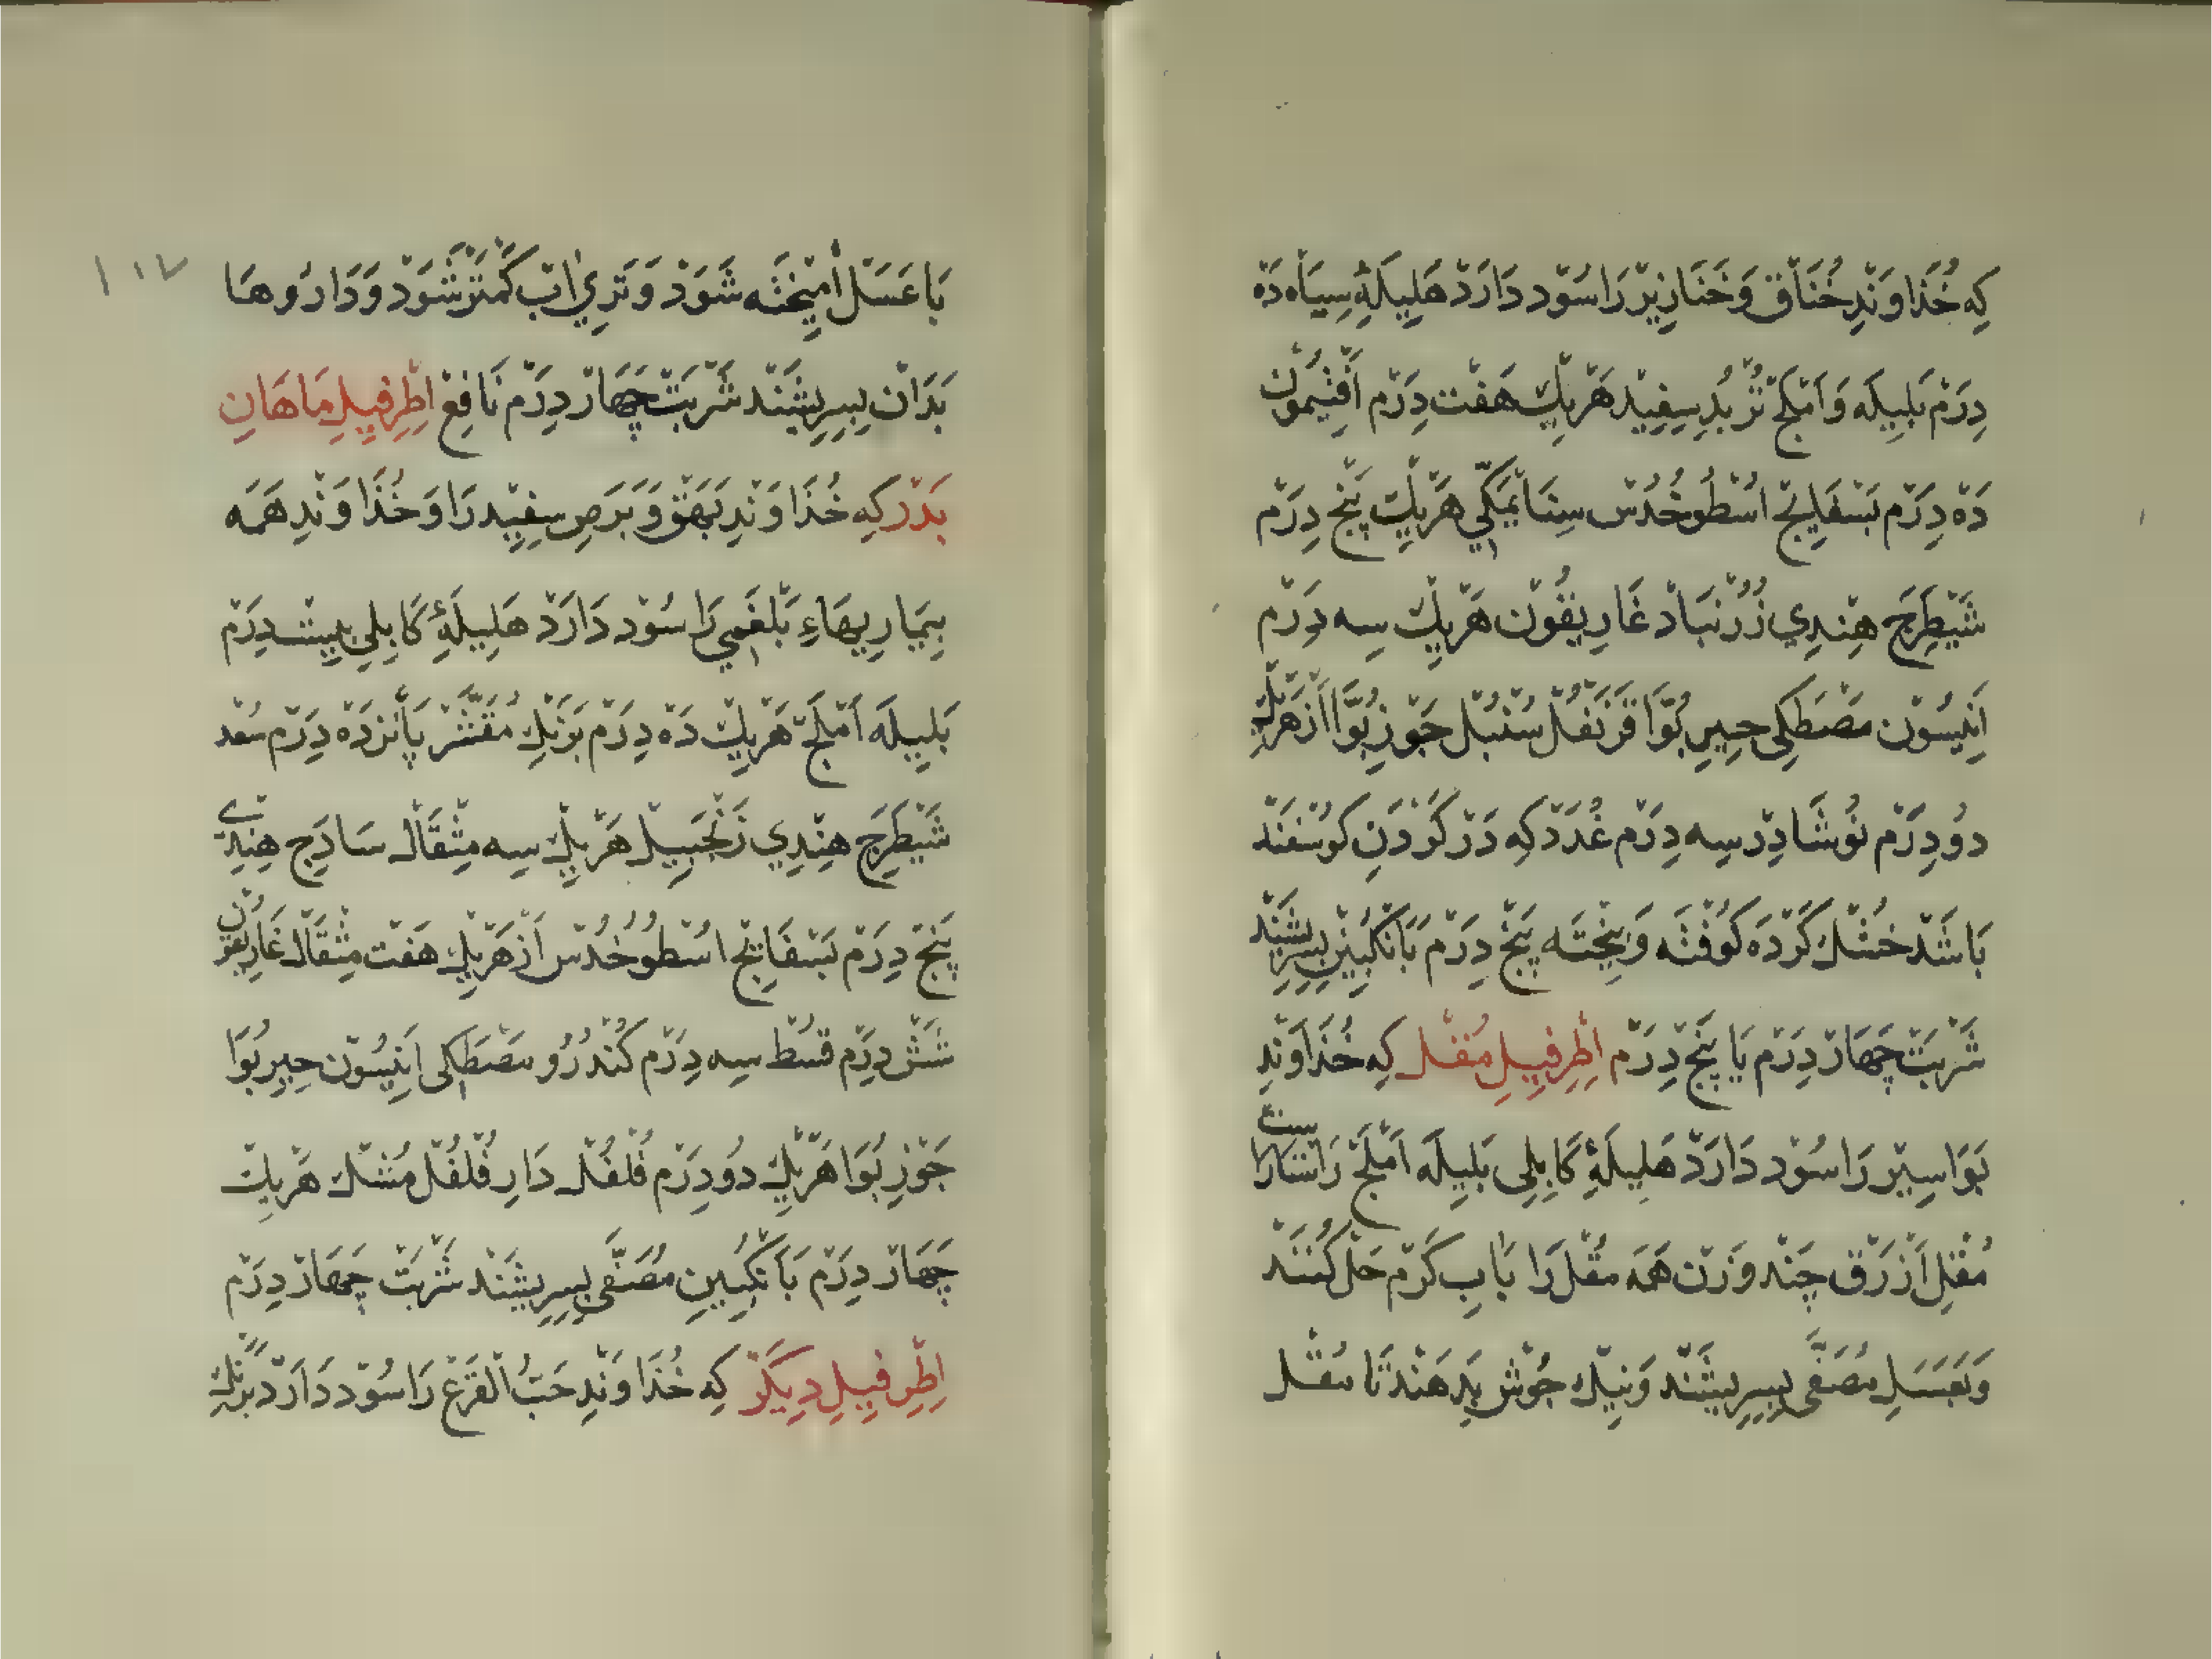 كِه خُذَاوَنْدِ خُنَاقْ وَخَنَازِيرْ رَا سُوْد دَارَدْ هَلِيلَهٔ سِيَاه دَهْ
دِرَمْ بَلِيلَه وَاَمْلَجْ تُرْبُدِ سِفِيْد هَرْيِكْ هَفْت دِرَمْ اَفْتِيْمُوْن
دَهْ دِرَمْ بَسْفَايِجْ اُسْطُوخُدُسْ سِنَاءِ مَكِّي هَرْيِكْ پَنْج دِرَمْ
شَيْطَرِجِ هِنْدِي زُرُنْبَادْ غَارِيْقُوْن هَرْيِكْ سِه دِرَمْ
اَنِيْسُوْن مَصْطَكِى خِيرِ بُوَّا قَرَنْفُلْ سُنْبُلْ جَوْزِ بُوَّا اَزْ هَرْيِكْ
دُو دِرَمْ نُوْشَادِرْ سِه دِرَمْ غُدَدْ كِه دَرْ گَرْدَنِ گُوْسْفَنْد
بَاشَدْ خُشْك كَرْدَه كُوْفْتَه وَبِيخْتَه پَنْج دِرَمْ بَانْگَبِيْن بِسِرِيشَنْد
شَرْبَتْ چَهَارْ دِرَمْ يَا پَنْج دِرَمْ اِطْرِفِيلِ مُقْل كِه خُذَاوَنْدِ
بَوَاسِيْر رَا سُوْد دَارَدْ هَلِيلَهٔ كَابِلِى بَلِيلَه اَمْلَجْ رَاسْتَارَاسْت
مُقْلِ اَزْرَقْ چَنْدِ وَزْن هَمَه مُقْل رَا بَآبِ گَرْم حَلْ كُنَنْد
وَبَعَسَلِ مُصَفَّى بِسِرِيشَنْد وَنِيْك جُوْش بِدَهَنْد تَا مُقْل
١٠٧
بَا عَسَلْ اٰمِيْخْتَه شَوَدْ وَتَرِيِ اٰبْ كَمْتَرْ شَوَدْ وَدَارُوهَا
بَدَانْ بِسِرِيشَنْد شَرْبَتْ چَهَارْ دِرَمْ نَافِعْ اِطْرِفِيلِ مَاهَانِ
بَدْر كِه خُذَاوَنْدِ بَهَقْ وَبَرَصِ سِفِيْد رَا وَخُذَاوَنْدِ هَمَه
بِيمَارِيهَاءِ بَلْغَمِي رَا سُوْد دَارَدْ هَلِيلَهٔ كَابِلِى بِيسْت دِرَمْ
بَلِيلَه اَمْلَجْ هَرْيِكْ دَهْ دِرَمْ بِرَنْكِ مُقَشَّرْ پَانْزَدَهْ دِرَمْ سُعْد
شَيْطَرِجِ هِنْدِي زَنْجَبِيْل هَرْيِكْ سِه مِثْقَالْ سَادَجِ هِنْدِي
پَنْج دِرَمْ بَسْفَايِجْ اُسْطُوخُدُسْ اَزْ هَرْيِكْ هَفْت مِثْقَالْ غَارِيْقُوْن
شَشْ دِرَمْ قُسْط سِه دِرَمْ كُنْدُرُو مَصْطَكِى اَنِيْسُوْن خِيرِ بُوَا
جَوْزِ بُوَا هَرْيِكْ دُو دِرَمْ فُلْفُل دَارِ فُلْفُل مُشْك هَرْيِكْ
چَهَارْ دِرَمْ بَانْگُبِين مُصَفَّى بِسِرِيشَنْد شَرْبَتْ چَهَارْ دِرَمْ
اِطْرِفِيلِ دِيگَرْ كِه خُذَاوَنْدِ حَبُّ الْقَرْعْ رَا سُوْد دَارَدْ بِرَنْك